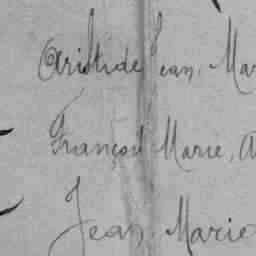 Aristide Jean, Mar
François Marie, A
Jean, Marie